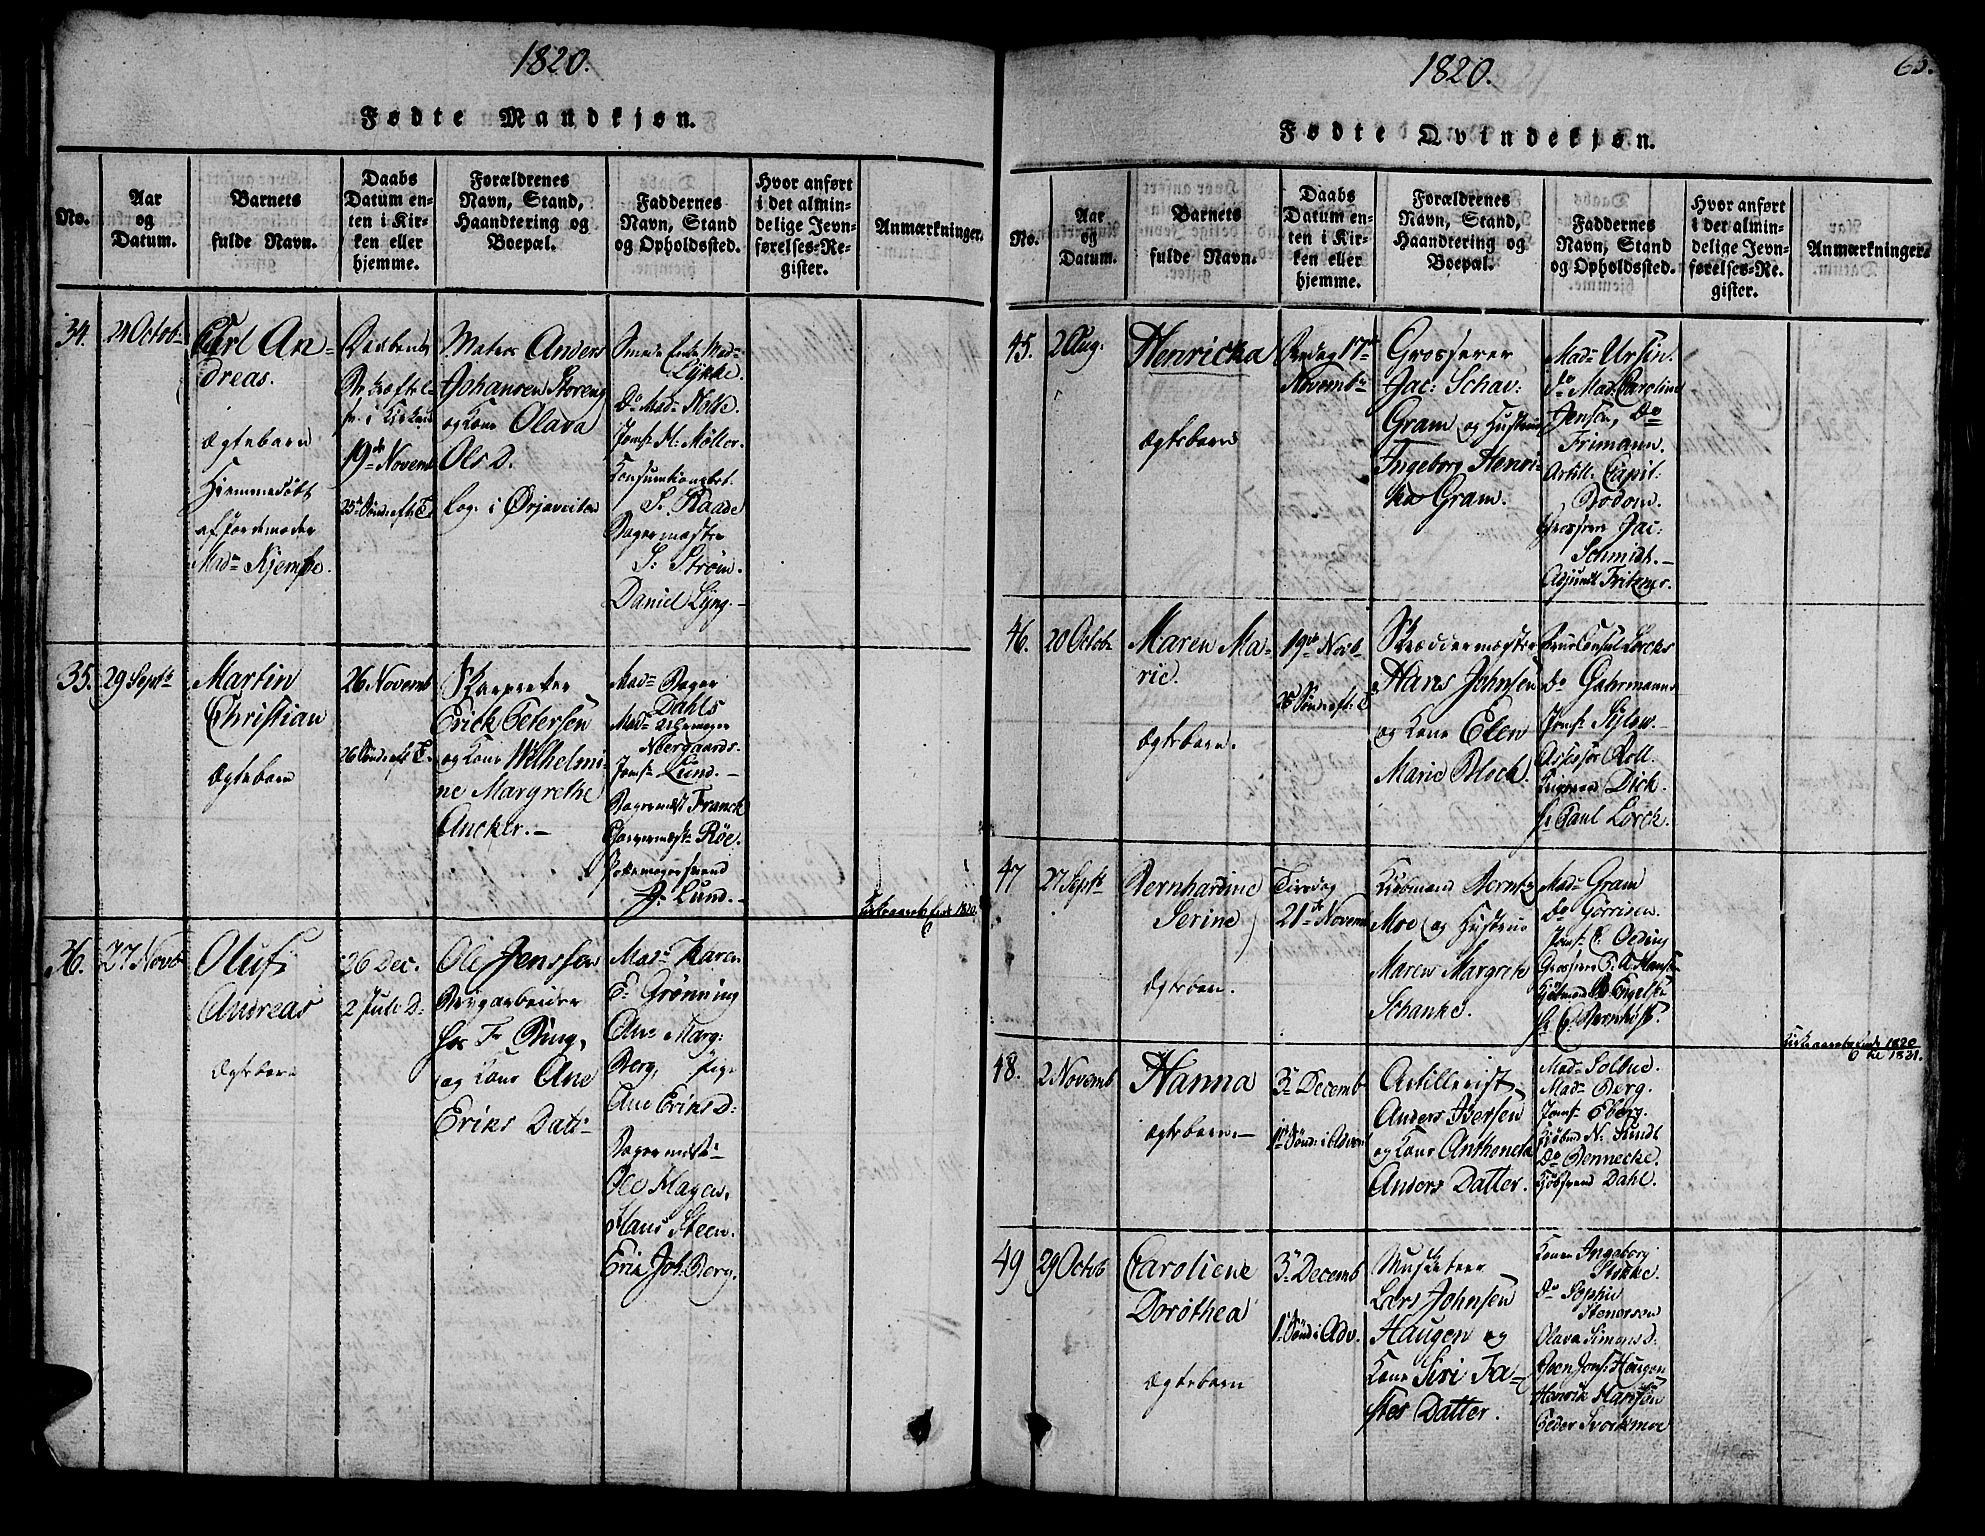 1820.
Fødte Mandkjøn.
No.
Aar
og
Datum.
Barnets
fulde Navn.
Daabs
Datum en-
ten i Kir-
ken eller
hjemme.
Forældrenes
Navn, Stand,
Haandtering og
Boepæl.
Faddernes
Navn, Stand
og Opholdssted.
Hvor anført
i det almin-
delige Jevn-
førelses-Re-
gister.
Anmærkninger.
34.
24 Octob
Carl An-
dreas.
Ægtebarn
Hjemmedøbt
af Jordemoder
Mad
i Kirken
19de Novemb
25 Sønd. eft. T.
Anders
Johansen Storeng
og Kone Olava
Ols D.
Log: i
Lykke.
Do Mad:
Jomf: H: Möller.
S: Kaade
Bagermester
S: Strøm.
Daniel Lyng.
35.
29 Septb
Martin
Christian
Ægtebarn
26 Novemb
26 Sønd. eft T.
Erick Petersen
og Kone Wilhelmi-
ne Margrethe
Ancker.
Mad: Bager
Dahls
Mad:
Noergaards.
Jomf: Lund.
Bagermest Franck
Röe.
J: Lund.
36.
27 Novb
Oluf
Andreas
Ægtebarn
26 Dec.
2 Jule D.
Ole Jenssen
Brygarbeider
hos Fr
og Kone Ane
Eriks Datt
Mad: Karen
E: Grønning
Ane Marg:
Berg, Pige
Ane Eriks D:
Bagermest:
Ole
Hans Steen.
Eric Joh: Berg.
1820.
65.
Fødte Qvindekjøn.
No.
Aar
og
Datum.
Barnets
fulde Navn.
Daabs
Datum en-
ten i Kir-
ken eller
hjemme.
Forældrenes
Navn, Stand,
Haandtering og
Boepæl.
Faddernes
Navn, Stand
og Opholdssted.
Hvor anført
i det almin-
delige Jevn-
førelses-Re-
gister.
Anmærkninger.
45.
2 Aug:
Henricka
Ægtebarn
17de
Novemb
Grosserer
Jac: Schav:
Gram og Hustrue
Ingeborg Henri-
ka Gram.
Mad: Ursin.
Do Mad: Caroline
Jensen, Do
Frimann.
Artill: Capit:
Rodom.
Grosserer Jac:
Schmidt.
Adjunct
46.
20 Octob
Maren Ma-
rie.
Ægtebarn.
19de Novb
25 Sønd. eft. T
Skreddermester
Hans Johnsen
og Kone Elen
Marie Block.
Consul Lorcks
Do Gahrmann
Jomf:
Assessor Roll.
Dick.
Hr Paul Lorck.
47
27 Septb
Bernhardine
Serine
Ægtebarn.
Tirsdag
21de Novemb
Kiøbmand Berndt
Moe og Hustrue
Maren Margrete
Schanke.
Mad: Gram
Do Görrisen.
Jomf: C: Oeding
Grosserer
Kiöbmand
48.
2 Novemb
Hanna
Ægtebarn.
3de Decemb
1ste Sönd: i Adv:
Artillerist
Anders Iversen
og Kone Anthonetta
Anders Datter.
Mad: Solbue.
Mad: Berg.
Jomf: Eberg.
Kjöbmd N: Lundt
Do Bennecke.
Dahl.
49
29 Octob
Caroliene
Dorothea
Ægtebarn
3de Decemb
1ste Sönd: i Adv.
Musqueteer
Lars Johnsen
Haugen og
Kone Siri Fa-
stes Datter.
Konen Ingeborg
Stokke.
Do Sophie
Stenersen
Olava Simens D:
Haugen
Henrik Hansen
Peder Svorkmoe